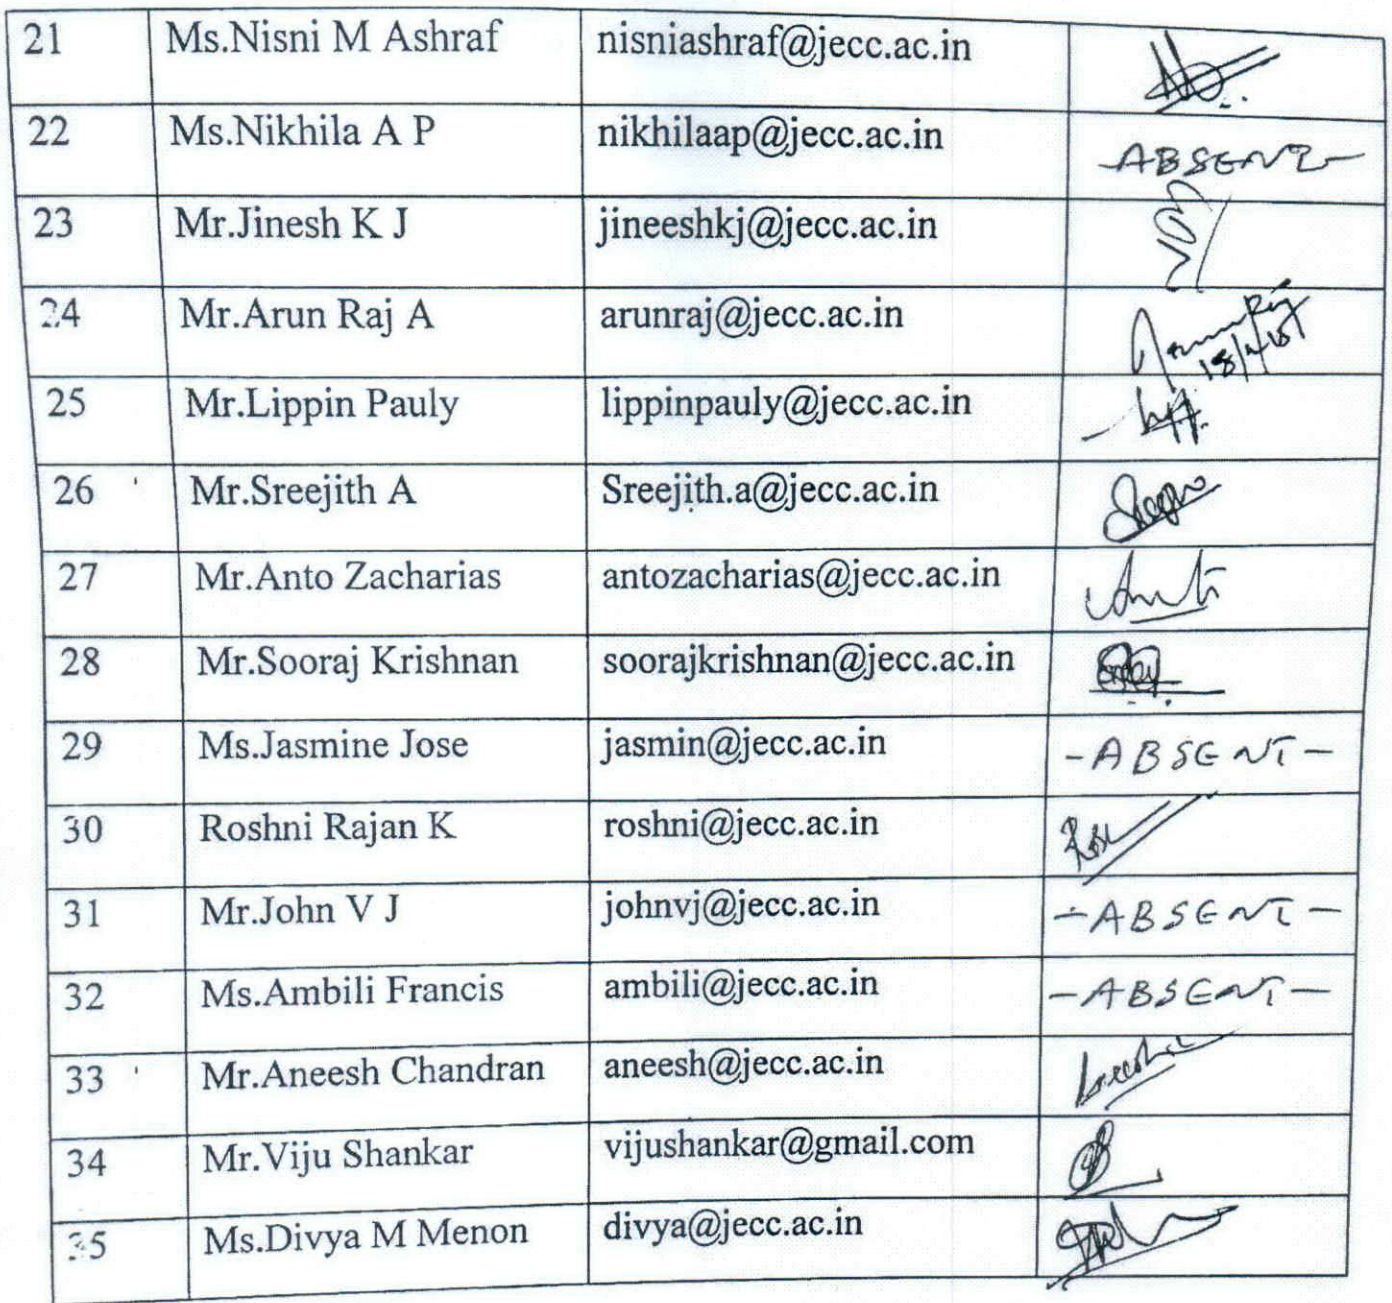 21 Ms.Nisni M Ashraf nisniashraf@jecc.ac.in
22 Ms.Nikhila A P nikhilaap@jecc.ac.in -ABSENT-
23 Mr.Jinesh K J jineeshkj@jecc.ac.in
24 Mr.Arun Raj A arunraj@jecc.ac.in
25 Mr.Lippin Pauly lippinpauly@jecc.ac.in
26 Mr.Sreejith A Sreejith.a@jecc.ac.in
27 Mr.Anto Zacharias antozacharias@jecc.ac.in
28 Mr.Sooraj Krishnan soorajkrishnan@jecc.ac.in
29 Ms.Jasmine Jose jasmin@jecc.ac.in -ABSENT-
30 Roshni Rajan K roshni@jecc.ac.in
31 Mr.John V J johnvj@jecc.ac.in -ABSENT-
32 Ms.Ambili Francis ambili@jecc.ac.in -ABSENT-
33 Mr.Aneesh Chandran aneesh@jecc.ac.in
34 Mr.Viju Shankar vijushankar@gmail.com
35 Ms.Divya M Menon divya@jecc.ac.in